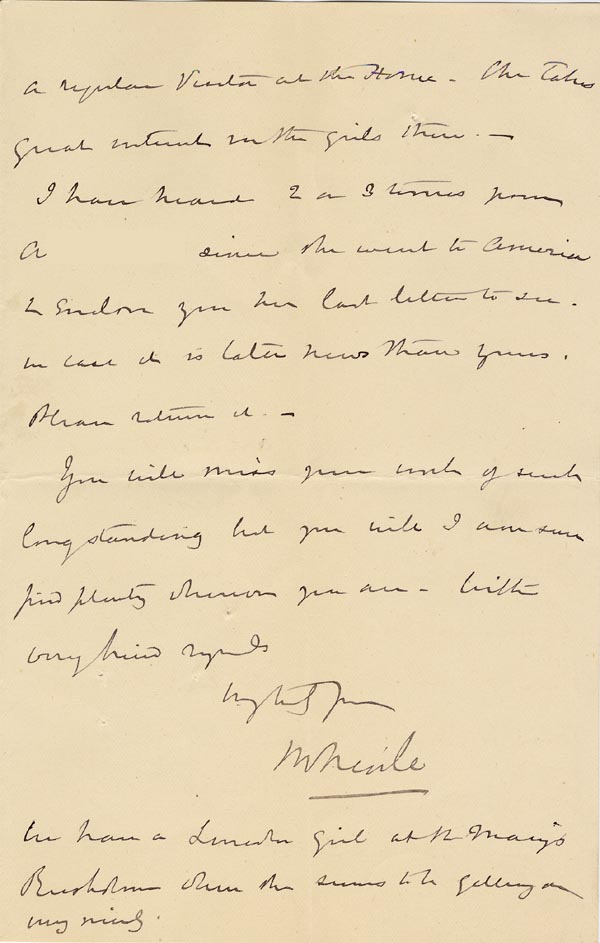 a regular Visitor at the Home - She Takes
great interest in the girls there. -
I have heard 2 or 3 times from
A since she went to America
I Enclose you her last letter to see -
in case it is later news than yours.
Please return it. -
You will miss your work of such
long standing but you will I am sure
find plenty wherever you are - With
very kind regards
truly yours
We have a Lincoln girl at St Mary's
where she seems to be getting on
very nicely.